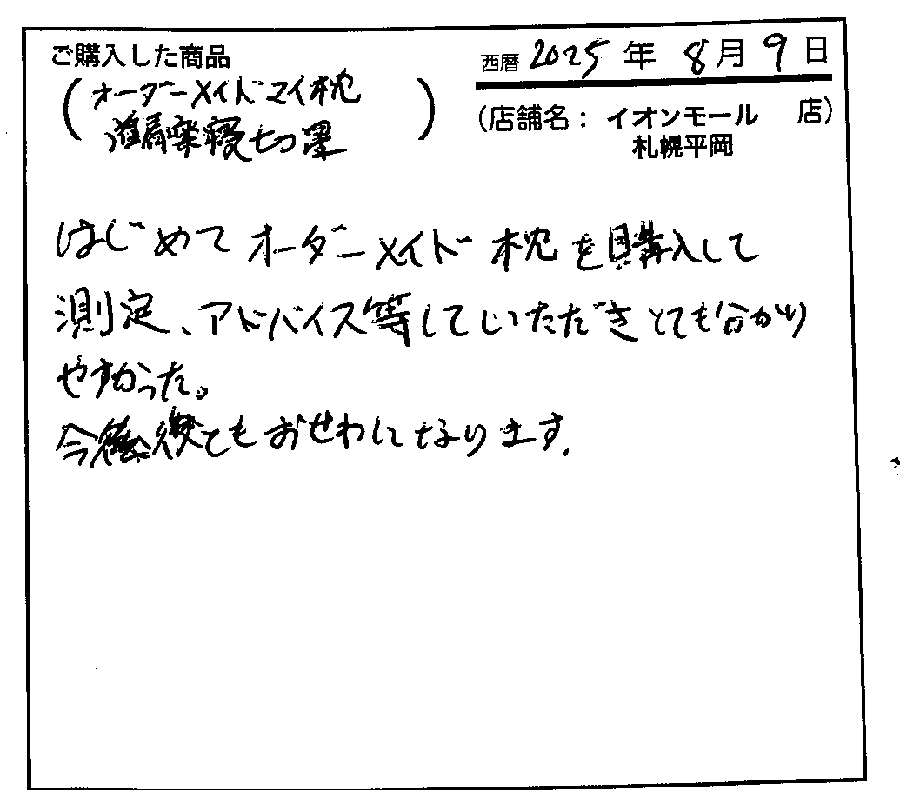 ご購入した商品
西暦 2025 年 8 月 9 日
(オーダーメイドマイ枕
肩楽寝)
(店舗名: イオンモール 店)
札幌平岡
はじめてオーダーメイド枕を購入して
測定、アドバイス等していただきとても分かり
やすかった。
今後ともおせわになります。